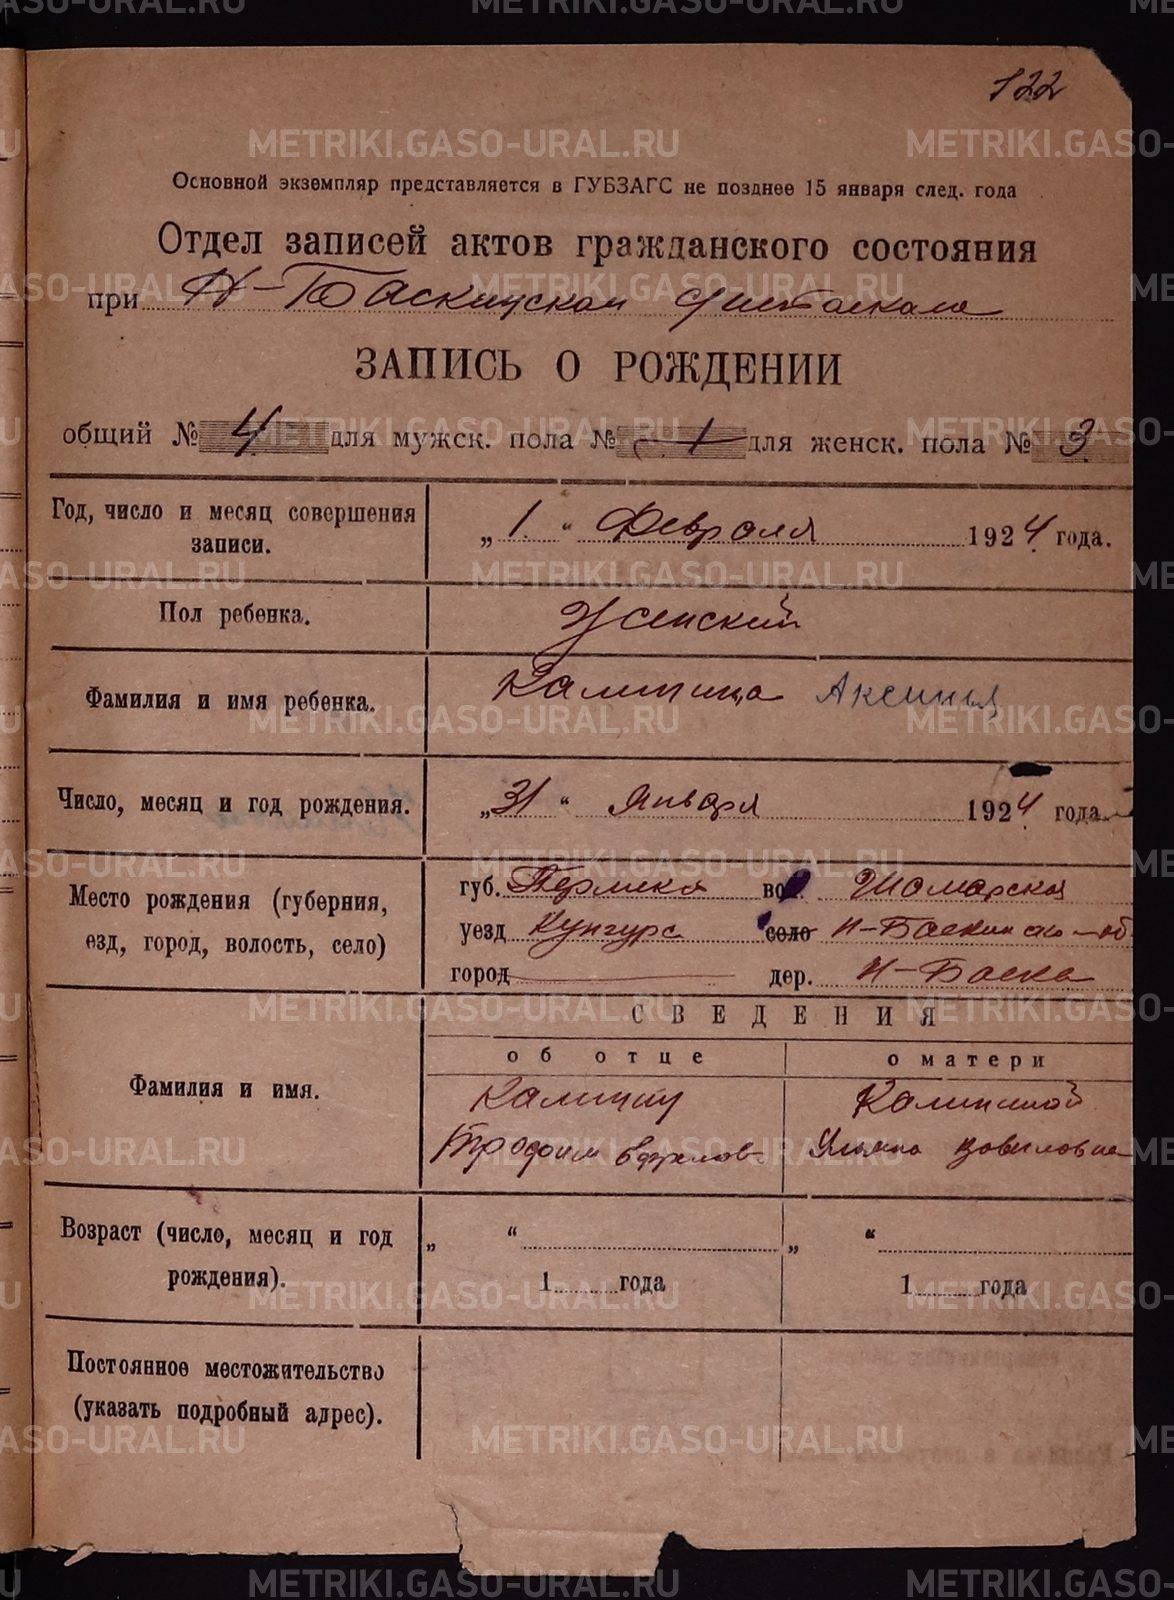 122
Основной экземпляр представляется в ГУБЗАГС не позднее 15 января след. года
Отдел записей актов гражданского состояния
при Н-Баскинском
ЗАПИСЬ О РОЖДЕНИИ
общий № 4 для мужск. пола № — 1 — для женск. пола № 3
Год, число и месяц совершения записи.
„ 1 “ Февраля 1924 года.
Пол ребенка.
Женский
Фамилия и имя ребенка.
Калинина Аксинья
Число, месяц и год рождения.
„ 31 “ Января 1924 года.
Место рождения (губерния,
езд, город, волость, село)
губ. Пермска во. Шамарская
уезд Кунгурс село Н-Баскинско-об
город — дер. Н-Баска
СВЕДЕНИЯ
об отце
о матери
Фамилия и имя.
Калинин
Трофим
Калинина
Вавиловна
Возраст (число, месяц и год
рождения).
„ “
1 года
„ “
1 года
Постоянное местожительство
(указать подробный адрес).
METRIKI.GASO-URAL.RU